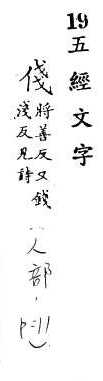 19五經文字
俴 將善反又錢
淺反見詩
(人部,P:11)